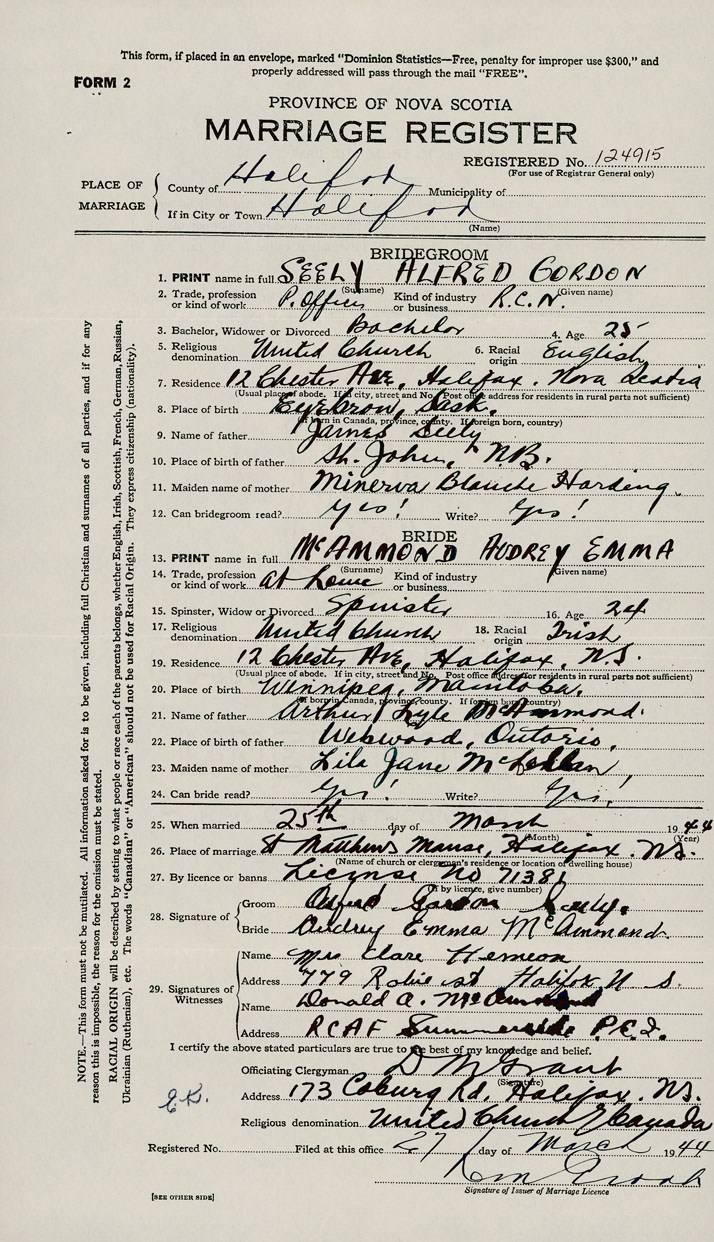 This form, if placed in an envelope, marked "Dominion Statistics—Free, penalty for improper use $300," and
properly addressed will pass through the mail "FREE".
FORM 2
PROVINCE OF NOVA SCOTIA
MARRIAGE REGISTER
REGISTERED No. 124915
(For use of Registrar General only)
PLACE OF MARRIAGE
County of Halifax Municipality of
If in City or Town Halifax
(Name)
BRIDEGROOM
1. PRINT name in full SEELY ALFRED GORDON
(Surname) (Given name)
2. Trade, profession or kind of work P. Officer Kind of industry or business R.C.N.
3. Bachelor, Widower or Divorced Bachelor 4. Age 25
5. Religious denomination United Church 6. Racial origin English
7. Residence 12 Chester Ave, Halifax. Nova Scotia
(Usual place of abode. If in city, street and No. Post office address for residents in rural parts not sufficient)
8. Place of birth Eyebrow, Sask.
(If born in Canada, province, county. If foreign born, country)
9. Name of father James Seely
10. Place of birth of father St. John, N.B.
11. Maiden name of mother Minerva Blanche Harding.
12. Can bridegroom read? Yes! Write? Yes!
BRIDE
13. PRINT name in full McAMMOND AUDREY EMMA
(Surname) (Given name)
14. Trade, profession or kind of work at home Kind of industry or business
15. Spinster, Widow or Divorced Spinster 16. Age 24
17. Religious denomination United Church 18. Racial origin Irish
19. Residence 12 Chester Ave, Halifax, N.S.
(Usual place of abode. If in city, street and No. Post office address for residents in rural parts not sufficient)
20. Place of birth Winnipeg, Manitoba.
(If born in Canada, province, county. If foreign born, country)
21. Name of father Arthur Lyle McAmmond.
22. Place of birth of father Webwood, Ontario,
23. Maiden name of mother Lila Jane
24. Can bride read? Yes! Write? Yes!
25. When married 25th day of March 1944
(Month) (Year)
26. Place of marriage St Matthews Manse, Halifax. N.S.
(Name of church or clergyman's residence or location of dwelling house)
27. By licence or banns License No 71381
(If by licence, give number)
28. Signature of
Groom Alfred Gordon Seely.
Bride Audrey Emma McAmmond.
29. Signatures of Witnesses
Name Mrs Clare Hemeon
Address 779 Robie st Halifax N S.
Name Donald A. McAmmond
Address RCAF Summerside P.E.I.
I certify the above stated particulars are true to the best of my knowledge and belief.
Officiating Clergyman D M Grant
(Signature)
Address 173 Coburg Rd, Halifax. N.S.
Religious denomination United Church of Canada
Registered No. Filed at this office 27 day of March 1944
Signature of Issuer of Marriage Licence
[SEE OTHER SIDE]
NOTE.—This form must not be mutilated. All information asked for is to be given, including full Christian and surnames of all parties, and if for any
reason this is impossible, the reason for the omission must be stated.
RACIAL ORIGIN will be described by stating to what people or race each of the parents belongs, whether English, Irish, Scottish, French, German, Russian,
Ukrainian (Ruthenian), etc. The words "Canadian" or "American" should not be used for Racial Origin. They express citizenship (nationality).